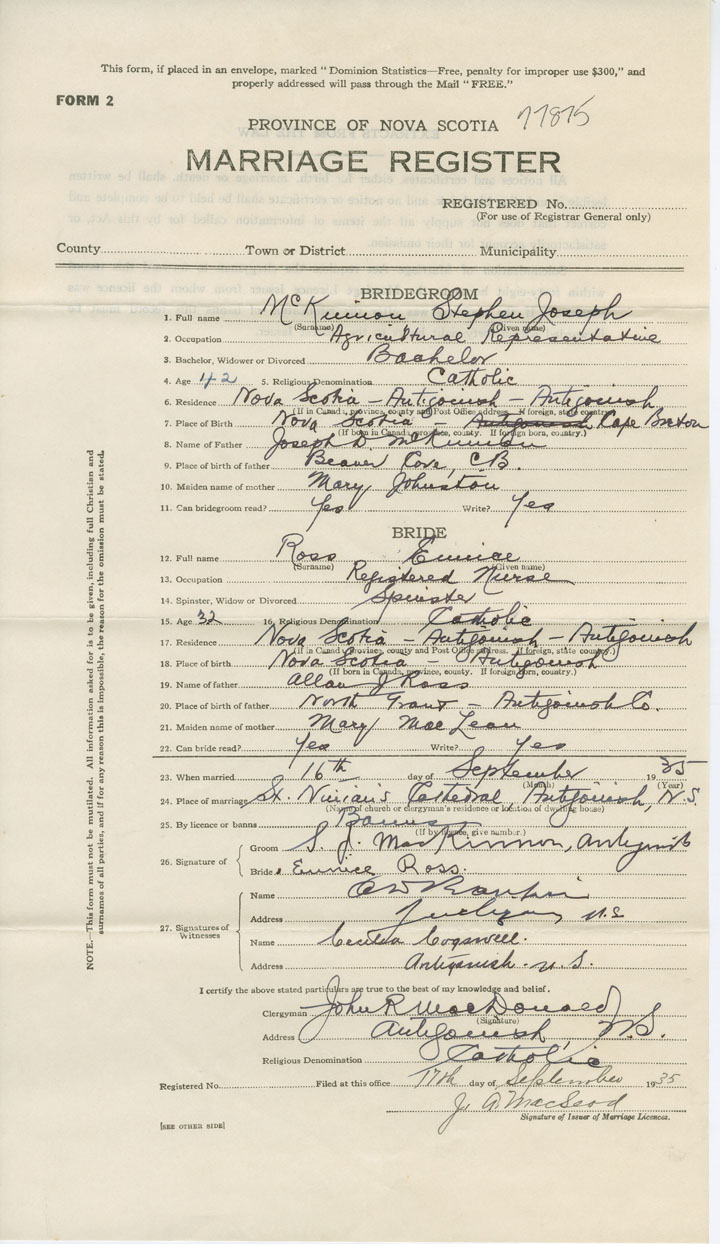 This form, if placed in an envelope, marked "Dominion Statistics—Free, penalty for improper use $300," and
properly addressed will pass through the Mail "FREE."
FORM 2
PROVINCE OF NOVA SCOTIA 77875
MARRIAGE REGISTER
REGISTERED No.
(For use of Registrar General only)
County Town or District Municipality
BRIDEGROOM
1. Full name McKinnon Stephen Joseph
(Surname) (Given name)
2. Occupation Agricultural Representative
3. Bachelor, Widower or Divorced Bachelor
4. Age 42 5. Religious Denomination Catholic
6. Residence Nova Scotia - Antigonish - Antigonish
(If in Canada, province, county and Post Office address. If foreign, state country.)
7. Place of Birth Nova Scotia - Antigonish Cape Breton
(If born in Canada, province, county. If foreign born, country.)
8. Name of Father Joseph D. McKinnon
9. Place of birth of father Beaver Cove, C.B.
10. Maiden name of mother Mary Johnston
11. Can bridegroom read? Yes Write? Yes
BRIDE
12. Full name Ross Eunice
(Surname) (Given name)
13. Occupation Registered Nurse
14. Spinster, Widow or Divorced Spinster
15. Age 32 16. Religious Denomination Catholic
17. Residence Nova Scotia - Antigonish - Antigonish
(If in Canada, province, county and Post Office address. If foreign, state country.)
18. Place of birth Nova Scotia - Antigonish
(If born in Canada, province, county. If foreign born, country.)
19. Name of father Allan J Ross
20. Place of birth of father North Grant - Antigonish Co.
21. Maiden name of mother Mary MacLean
22. Can bride read? Yes Write? Yes
23. When married 16th day of September 1935
(Month) (Year)
24. Place of marriage St. Ninian's Cathedral, Antigonish, N.S.
(Name of church or clergyman's residence or location of dwelling house)
25. By licence or banns Banns
(If by licence, give number.)
26. Signature of
Groom S. J. MacKinnon, Antigonish
Bride Eunice Ross.
27. Signatures of Witnesses
Name
Address N.S
Name Cecilia Cogswell.
Address Antigonish - N.S.
I certify the above stated particulars are true to the best of my knowledge and belief.
Clergyman John R MacDonald
(Signature)
Address Antigonish, N.S.
Religious Denomination Catholic
Registered No. Filed at this office 17th day of September 1935
J. A. MacLeod
Signature of Issuer of Marriage Licences.
[SEE OTHER SIDE]
NOTE.—This form must not be mutilated. All information asked for is to be given, including full Christian and
surnames of all parties, and if for any reason this is impossible, the reason for the omission must be stated.